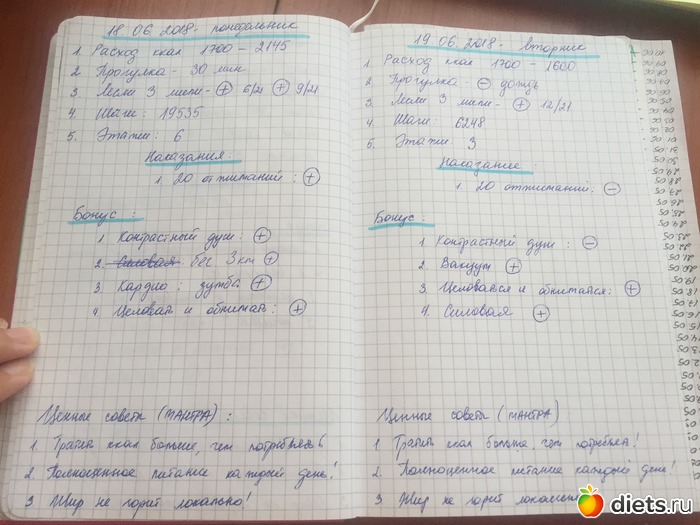 18 06 2018 - понедельник
1. Расход ккал 1700 - 2145
2 Прогулка - 30 мин
3 Лесли 3 мили - + 6/21 + 9/21
4. Шаги: 19535
5. Этажи: 6
Наказания:
1. 20 отжиманий: +
Бонус:
1 Контрастный душ: +
2. Силовая бег 3 км +
3. Кардио: зумба +
4. Целовать и обнимать: +
Ценные советы (МАНТРА):
1. Трать ккал больше, чем потребляешь
2. Полноценное питание каждый день!
3 Жир не горит локально!
19.06.2018 - вторник
1. Расход ккал 1700 - 1600
2 Прогулка - - дождь
3. Лесли 3 мили - + 12/21
4. Шаги: 6248
5. Этажи 3
Наказание:
1. 20 отжиманий: -
Бонус:
1 Контрастный душ: -
2. Вакуум +
3. Целоваться и обниматься: +
4. Силовая +
Ценные советы (МАНТРА)
1. Трать ккал больше, чем
2. Полноценное питание каждый день!
3 Жир не горит
diets.ru